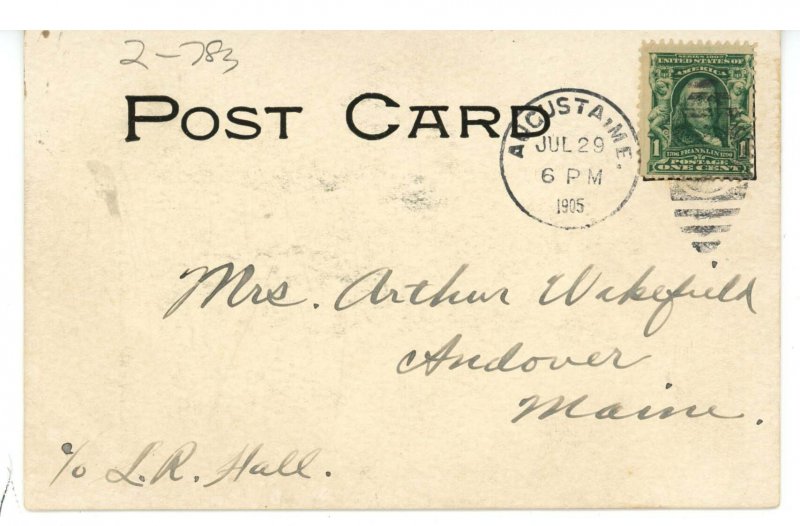 2-783
POST CARD
AUGUSTA, ME.
JUL 29
6 PM
1905
SERIES 1902
UNITED STATES OF
AMERICA
1 1
1706 FRANKLIN 1790
POSTAGE
ONE CENT
Mrs. Arthur Wakefield
Andover
Maine.
c/o L.R. Hall.